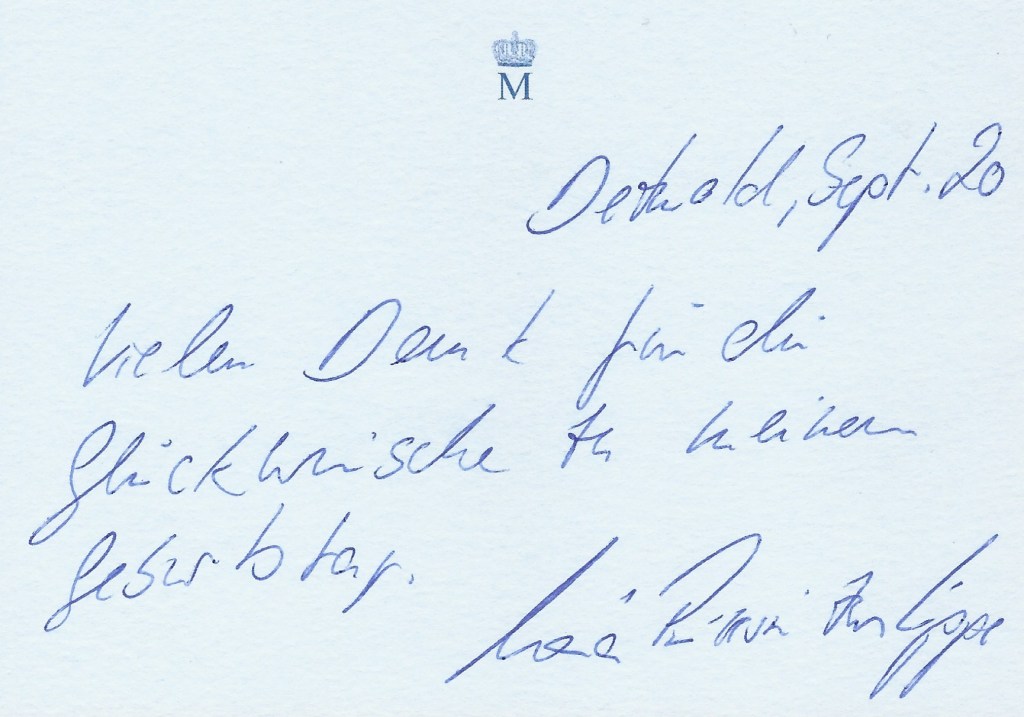 M
Detmold, Sept. 20
Vielen Dank für die
Glückwünsche zu meinem
Geburtstag.
Prinzessin zur Lippe